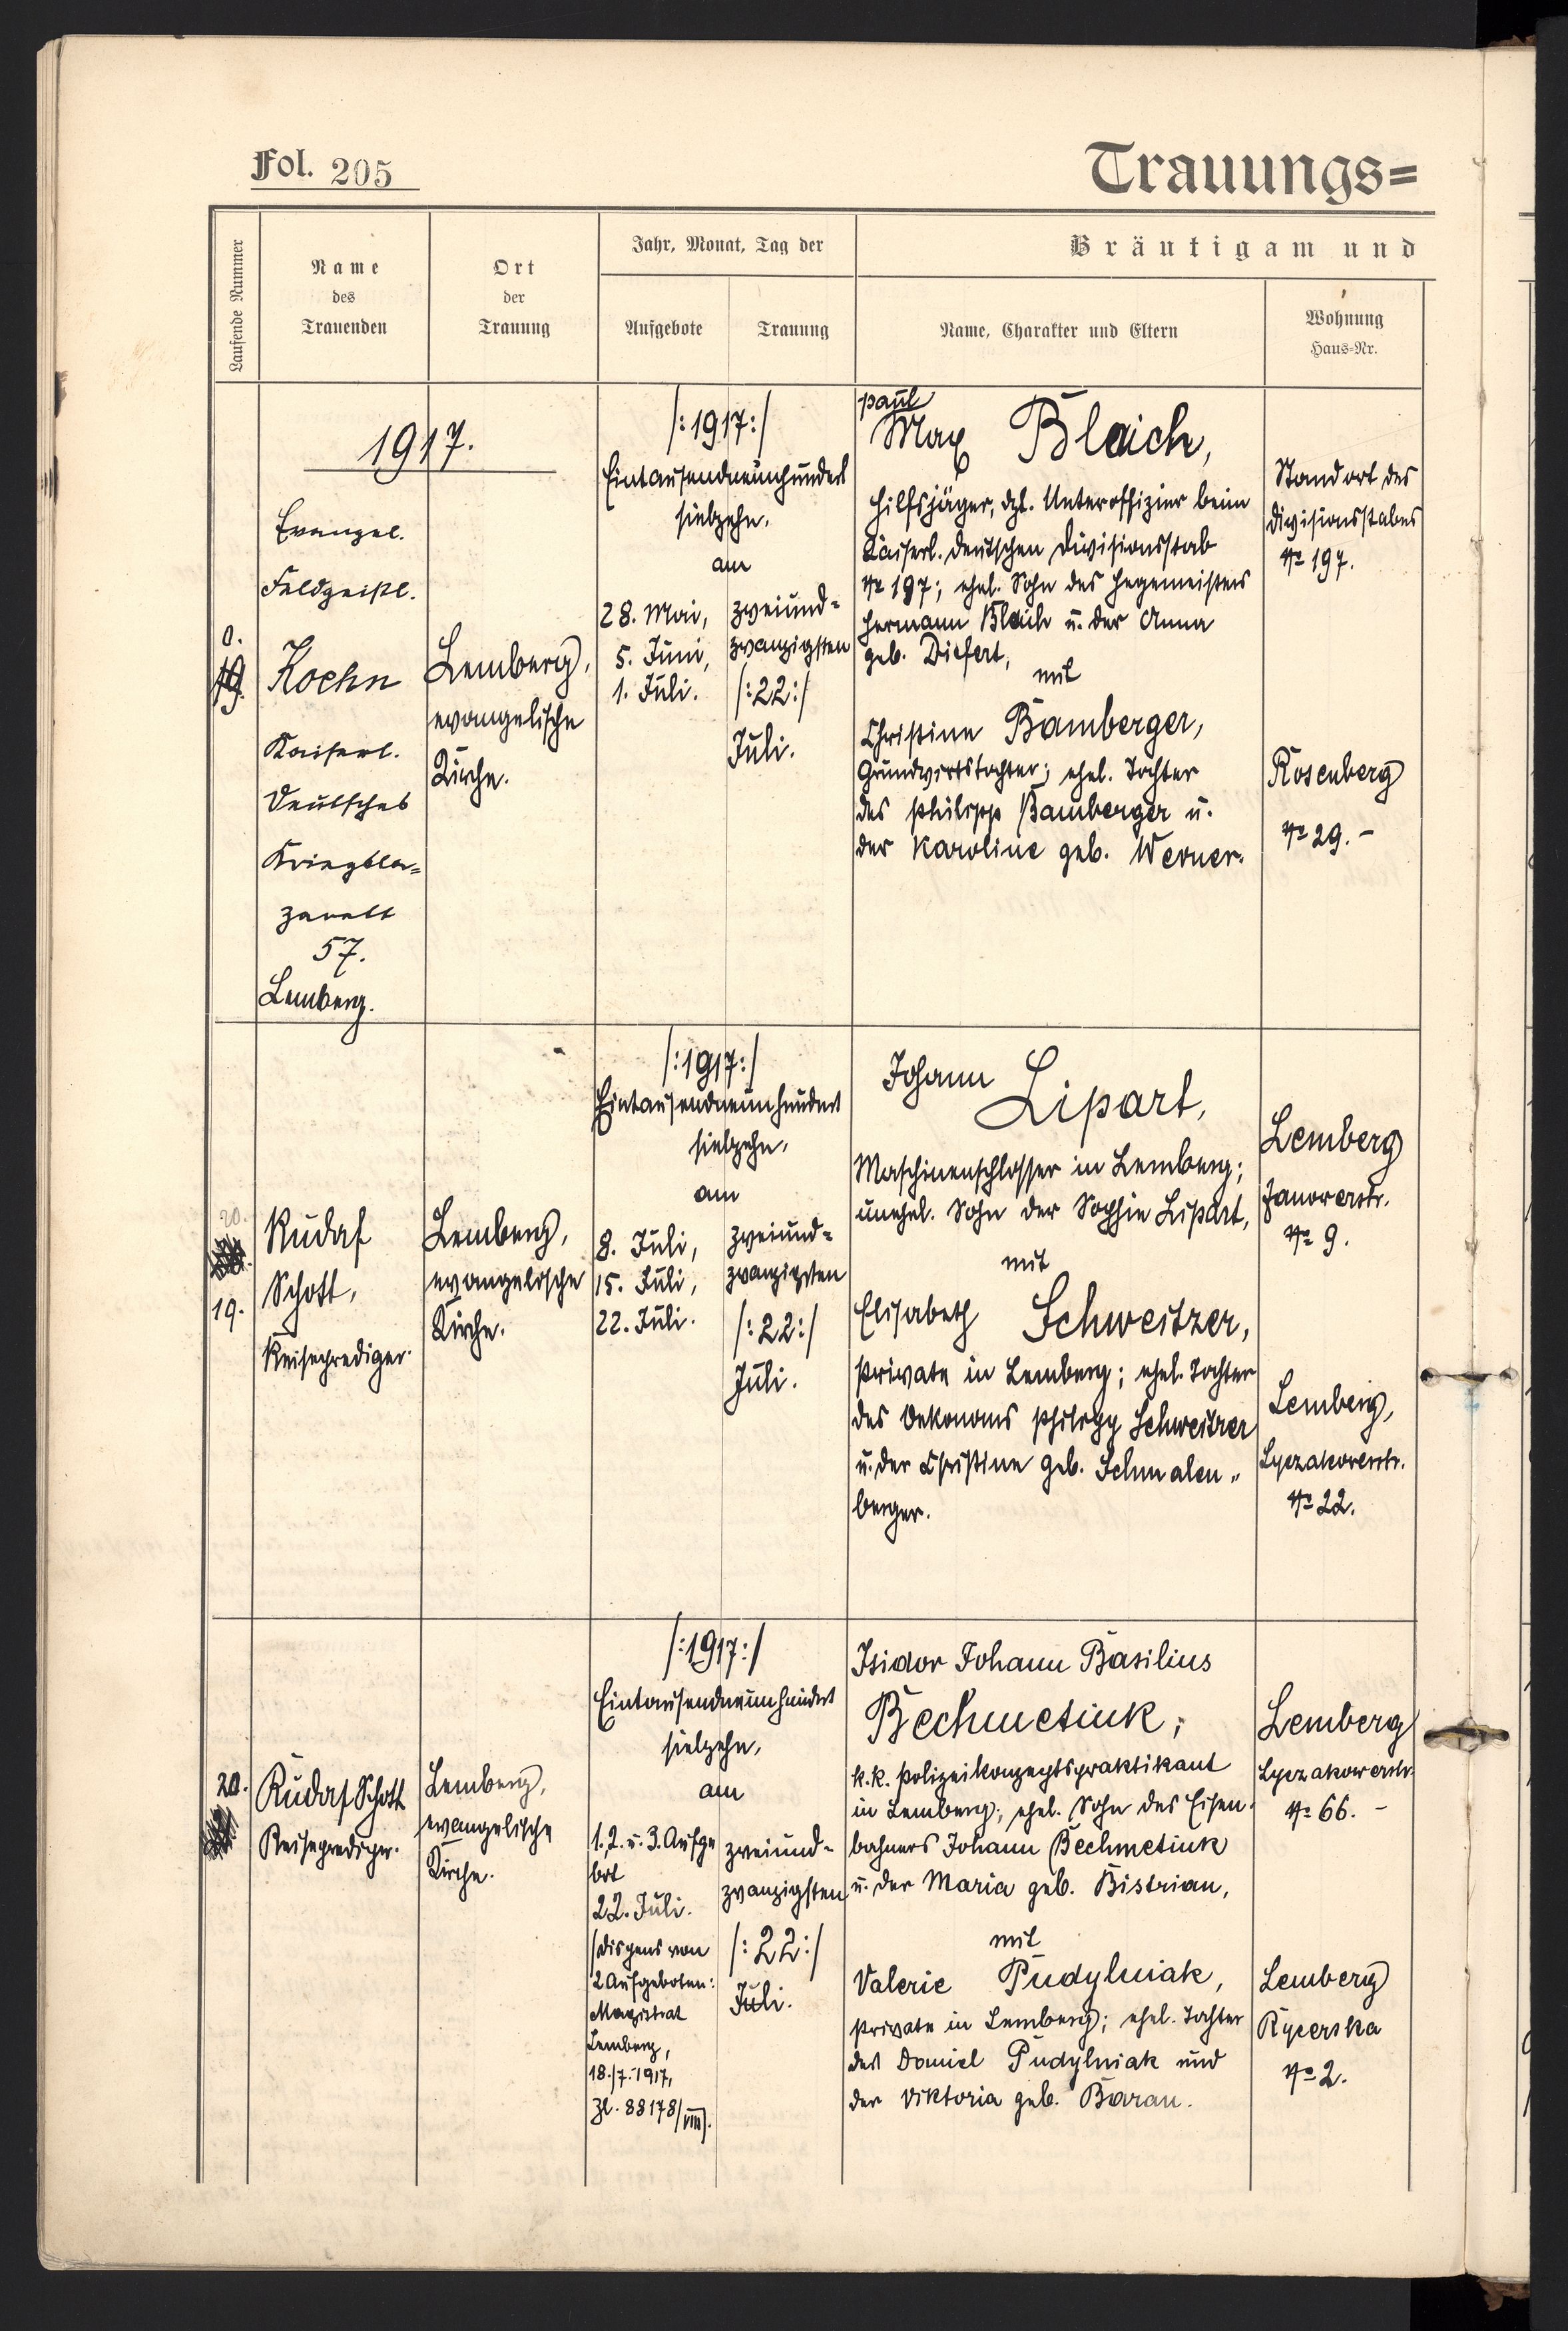 Fol. 205
Trauungs=
Laufende Nummer
Name
des
Trauenden
Ort
der
Trauung
Jahr, Monat, Tag der
Aufgebote
Trauung
Bräutigam und
Name, Charakter und Eltern
Wohnung
Haus=Nr.
1917.
Evangel.
Feldgeistl.
Koehn
Kaiserl.
Deutsches
Kriegsla=
zarett
57.
Lemberg.
Lemberg,
evangelische
Kirche.
/:1917:/
Eintausendneunhundert
siebzehn,
am
28. Mai,
5. Juni,
1. Juli.
zweiund=
zwanzigsten
/:22:/
Juli.
Paul
Max Blaich,
Hilfsjäger, dzt. Unteroffizier beim
Kaiserl. Deutschen Divisionsstab
No 197; ehel. Sohn des Hegemeisters
Hermann Blaich u. der Anna
geb. Diefert,
mit
Christine Bamberger,
Grundwirtstochter; ehel. Tochter
des Philipp Bamberger u.
der Karoline geb. Werner.
Standort des
Divisionsstabes
No 197.
Rosenberg
No 29. -
20.
19.
Rudolf
Schott,
Reiseprediger.
Lemberg,
evangelische
Kirche.
/:1917:/
Eintausendneunhundert
siebzehn,
am
8. Juli,
15. Juli,
22. Juli.
zweiund=
zwanzigsten
/:22:/
Juli.
Johann
Lipart,
Maschinenschlosser in Lemberg;
unehel. Sohn der Sophie Lipart,
mit
Elisabeth Schweitzer,
Private in Lemberg; ehel. Tochter
des Oekonoms Philipp Schweitzer
u. der Christine geb. Schmalen"
berger.
Lemberg
Janowerstr.
No 9.
Lemberg,
Lyczakowerstr.
No 22.
20.
Rudolf Schott
Reiseprediger.
Lemberg,
evangelische
Kirche.
/:1917:/
Eintausendneunhundert
siebzehn,
am
1., 2. u. 3. Aufge
bot
22. Juli.
/Dispens von
2 Aufgeboten:
Magistrat
Lemberg,
18./7. 1917,
Zl. 88178/VIII).
zweiund=
zwanzigsten
/:22:/
Juli.
Isidor Johann Basilius
Bechmetiuk;
k.k. Polizeikonzeptspraktikant
in Lemberg; ehel. Sohn des Eisen-
bahners Johann Bechmetiuk
u. der Maria geb. Bistrian,
mit
Valerie Pudylniak,
Private in Lemberg; ehel. Tochter
des Daniel Pudylniak und
der Viktoria geb. Baran.
Lemberg
Lyczakowerstr.
No 66. -
Lemberg
Rycerska
No 2.